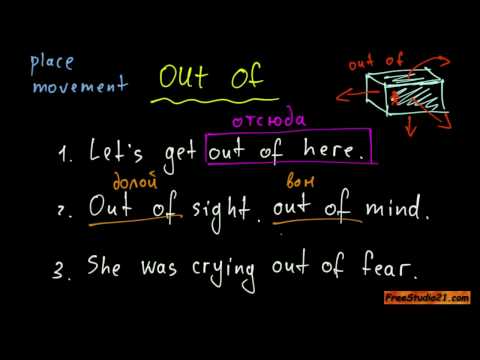 place
movement
out of
out of
отсюда
1. Let's get out of here.
долой вон
2. Out of sight, out of mind.
3. She was crying out of fear.
FreeStudio21.com